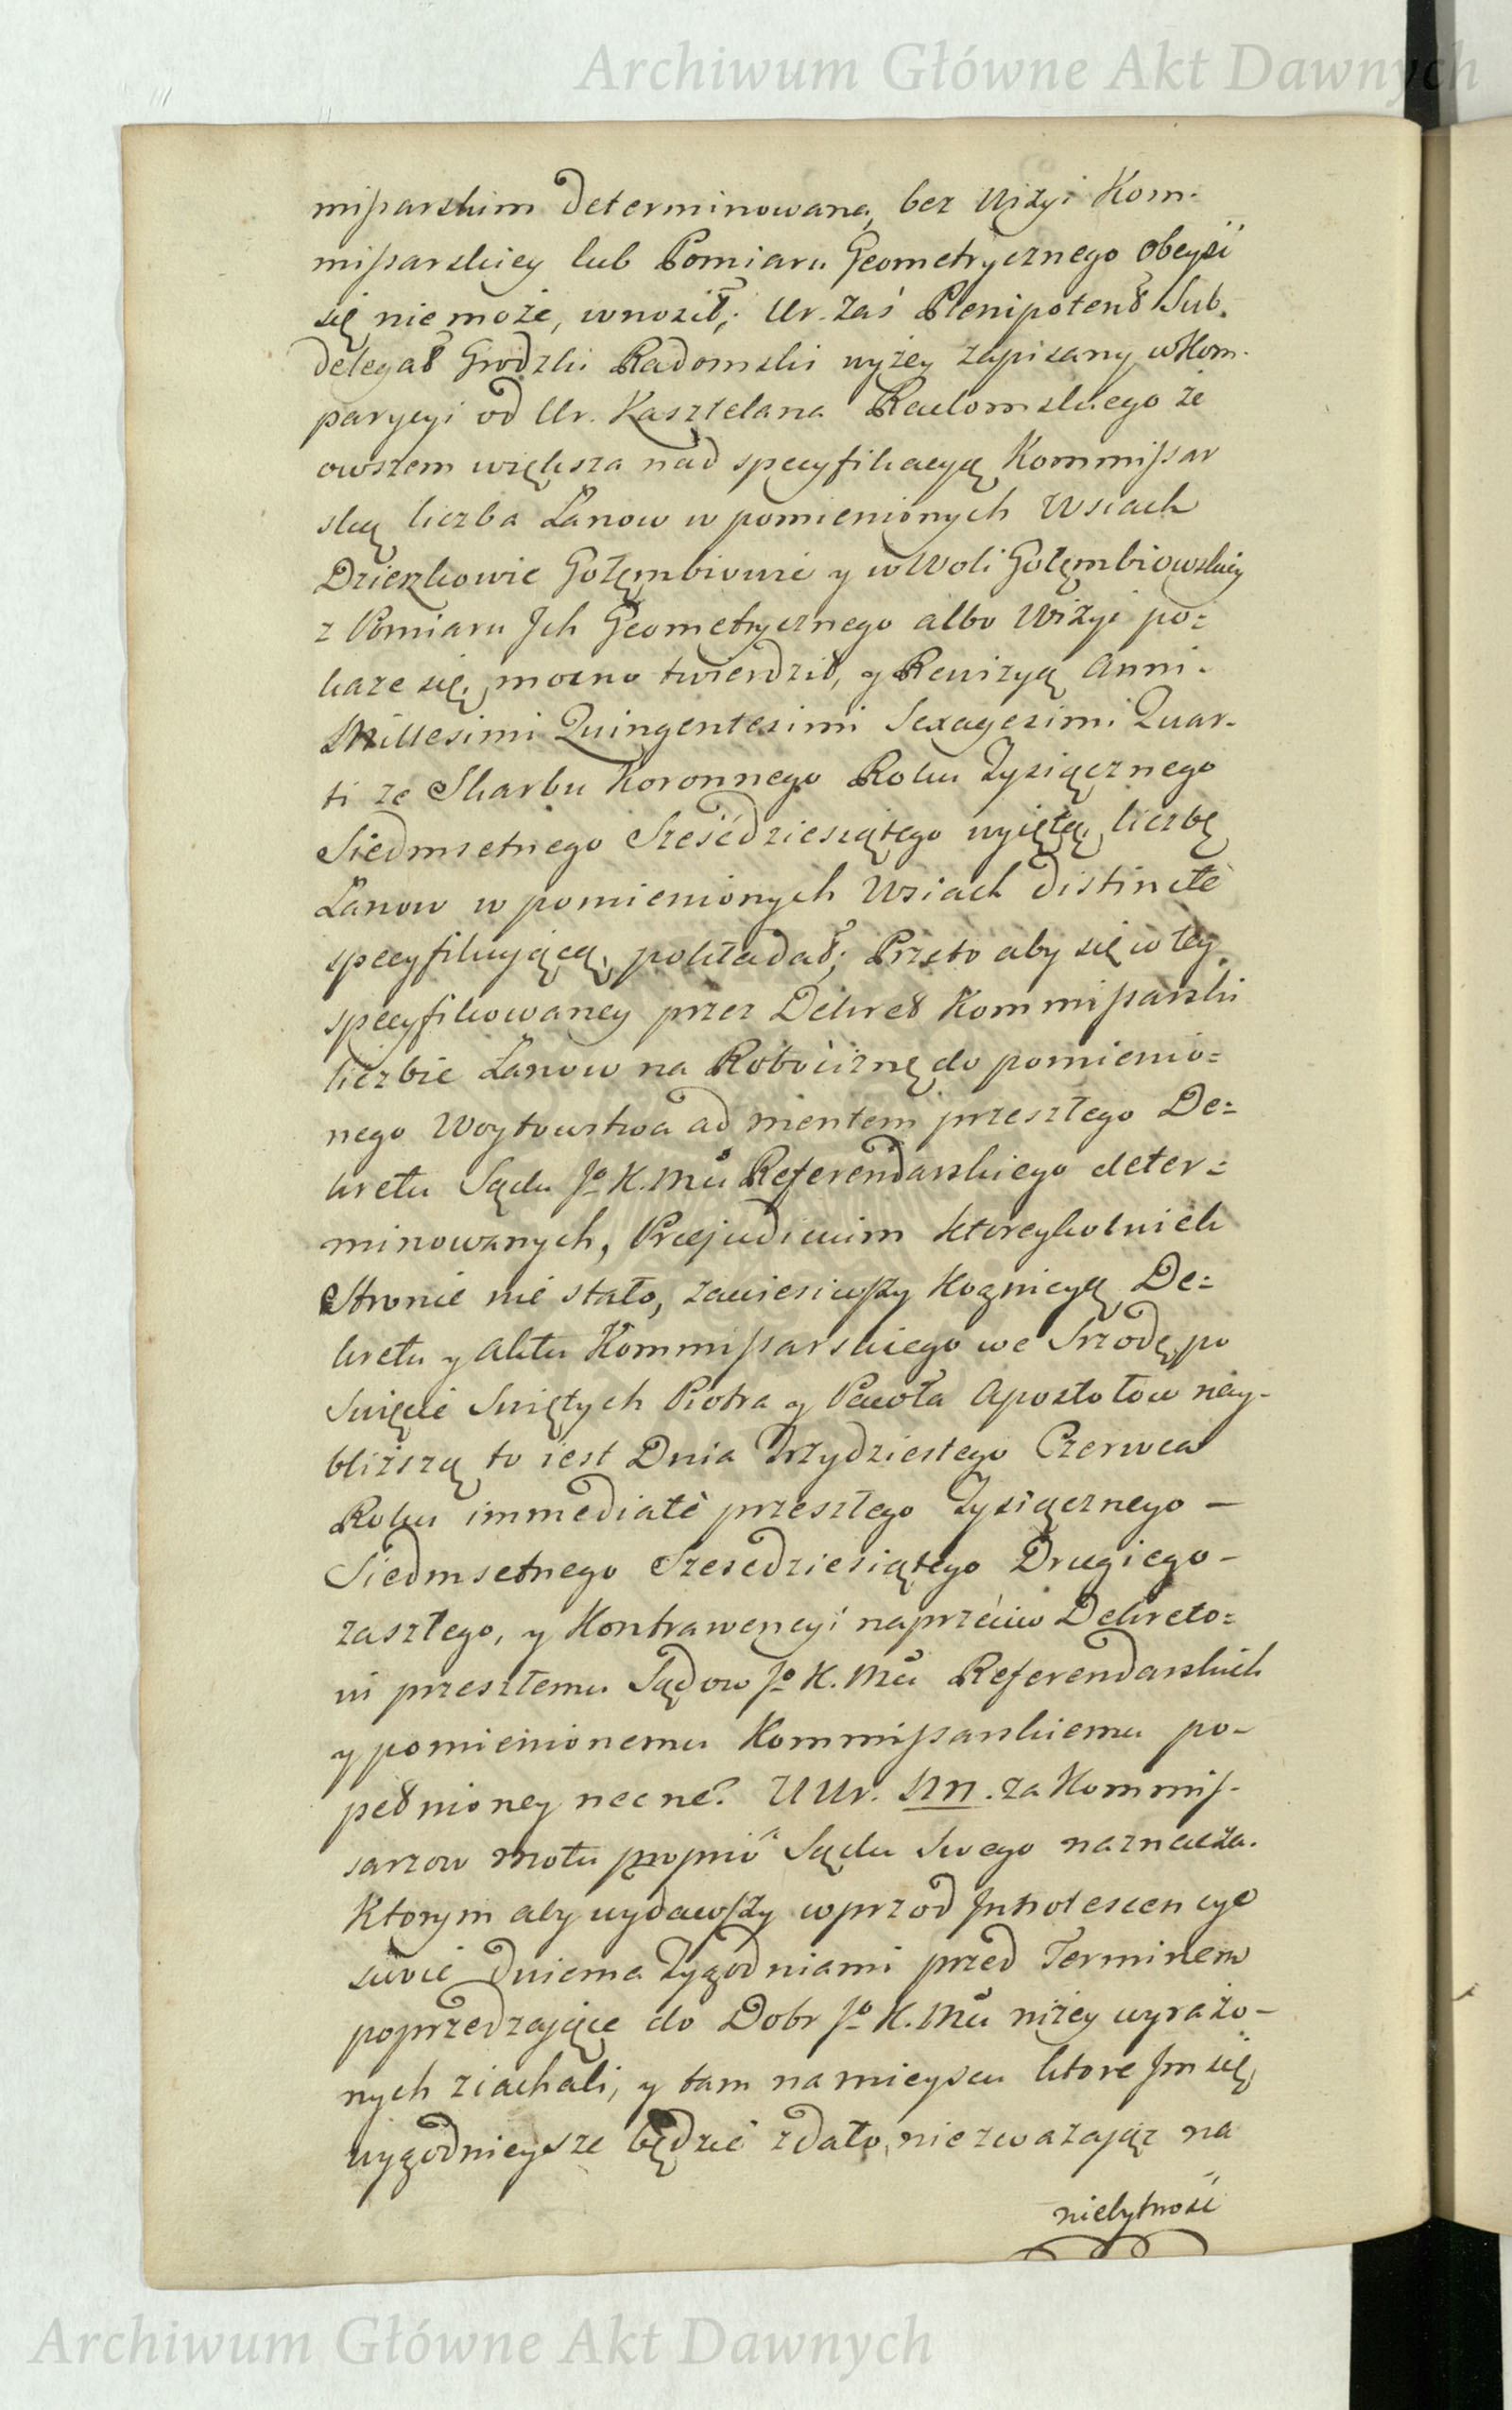 Archiwum Główne Akt Dawnych
missarskim determinowana, bez Wizyi Kom-
missarskiey lub Pomiaru Geometrycznego obeyść
się nie może, wnosił; Ur. Zaś Plenipotent Sub-
delegat Grodzki Radomski wyżey zapisany w Kom-
parycyi od Ur. Kasztelana Radomskiego że
owszem większa nad specyfikacyą Kommissar
ską liczba Łanow w pomienionych Wsiach
Dzieszkowie Gołęmbiowie y w Woli Gołęmbiowskiey
z Pomiaru Jch Geometrycznego albo Wizyi po=
każe się, mocno twierdził, y Rewizyą Anni
Millesimi Quingentesimi Sexagesimi Quar-
ti ze Skarbu Koronnego Roku Tysiącznego
Siedmsetnego Sześćdziesiątego wyiętą, liczbę
Łanow w pomienionych Wsiach distinctè
specyfikuiącą, pokładał; Przeto aby się w tey
specyfikowaney przez Dekret Kommissarski
liczbie Łanow na Robociznę do pomienio=
nego Woytowstwa ad mentem przeszłego De=
kretu Sądu Jo K. Mci Referendarskiego deter=
minowanych, Præjudicium ktoreykolwiek
Stronie nie stało, zawiesiwszy Kognicyą De=
kretu y Aktu Kommissarskiego we Srzodę po
Swięcie Swiętych Piotra y Pawła Apostołow nay-
bliższą to iest Dnia Trzydziestego Czerwca
Roku immediatè przeszłego Tysiącznego -
Siedmsetnego Szescdziesiątego Drugiego -
zaszłego, y Kontrawencyi naprzeciw Dekreto=
wi przeszłemu Sądow Jo K. Mci Referendarskich
y pomienionemu Kommissarskiemu po-
pełnioney necne? UUr. NN. za Kommis-
sarzow motu proprio Sądu Swego naznacza.
Ktorym aby wydawszy wprzod Jnnotescencye
swoie dwiema Tygodniami przed Terminem
poprzedzaiące do Dobr Jo K. Mci niżey wyrażo-
nych ziachali, y tam na mieyscu ktore Jm się
wygodnieysze będzie zdało, nie zważaiąc na
niebytność
Archiwum Główne Akt Dawnych